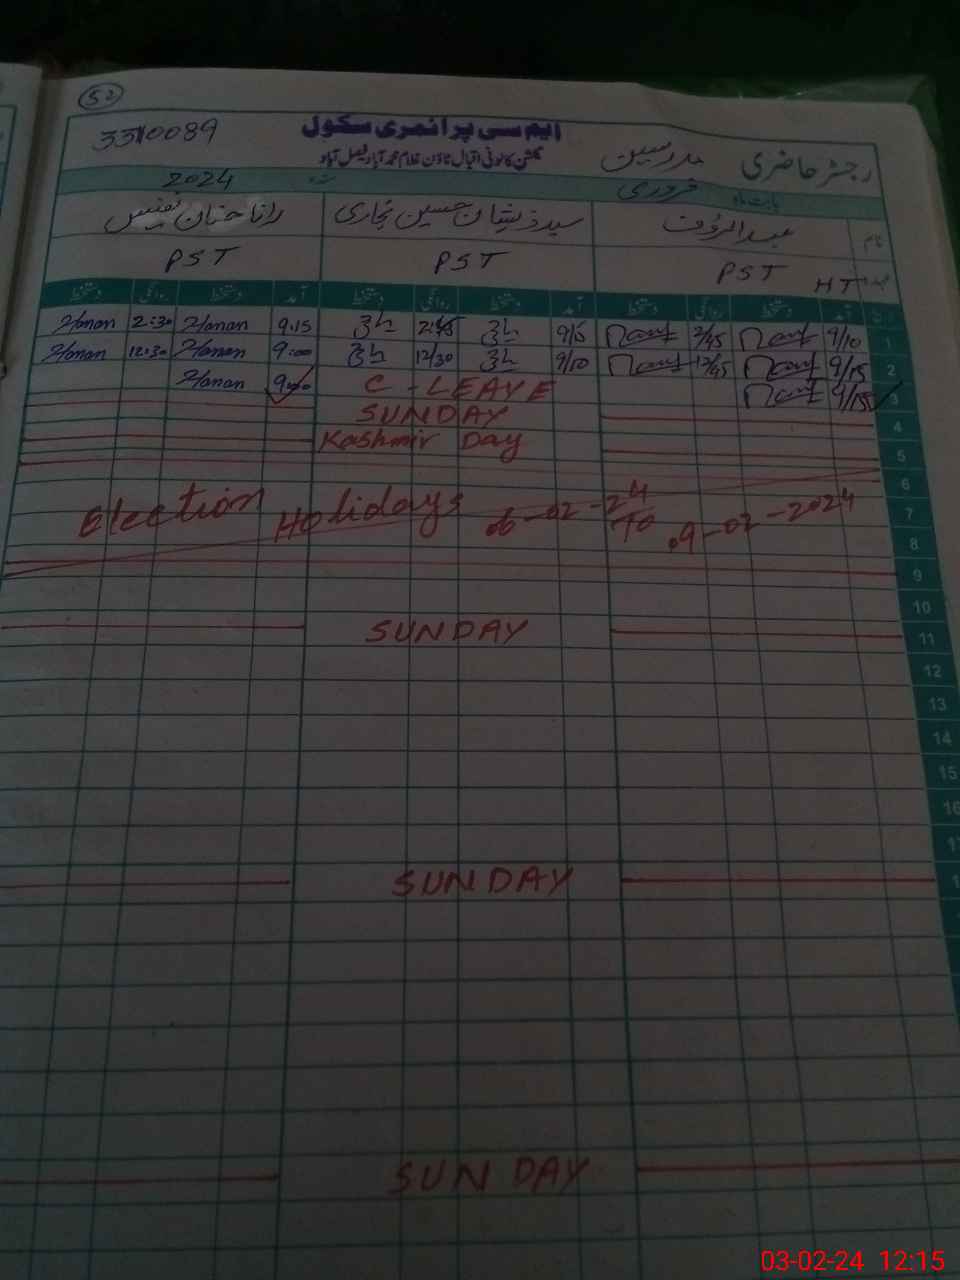 52
3310089 ایم سی پرائمری سکول
رجسٹر حاضری مدرسین گلشن کالونی اقبال ٹاؤن غلام محمد آباد فیصل آباد
بابت ماہ فروری سنہ 2024
نام عبدالرؤف سید ذیشان حسین بخاری رانا حنان نفیس
عہدہ PST HT PST PST
آمد دستخط روانگی دستخط آمد دستخط روانگی دستخط آمد دستخط روانگی دستخط
Hanan 2:30 Hanan 9:15 2:45 9/15 Rauf 2/45 Rauf 9/10 1
Hanan 12:30 Hanan 9:00 12/30 9/10 Rauf 12/45 Rauf 9/15 2
Hanan 9:00 C-LEAVE Rauf 9/15 3
SUNDAY 4
Kashmir Day 5
6
Election Holidays 06-02-24 To 09-02-2024 7
8
9
10
SUNDAY 11
12
13
14
15
16
SUNDAY
SUNDAY
03-02-24 12:15